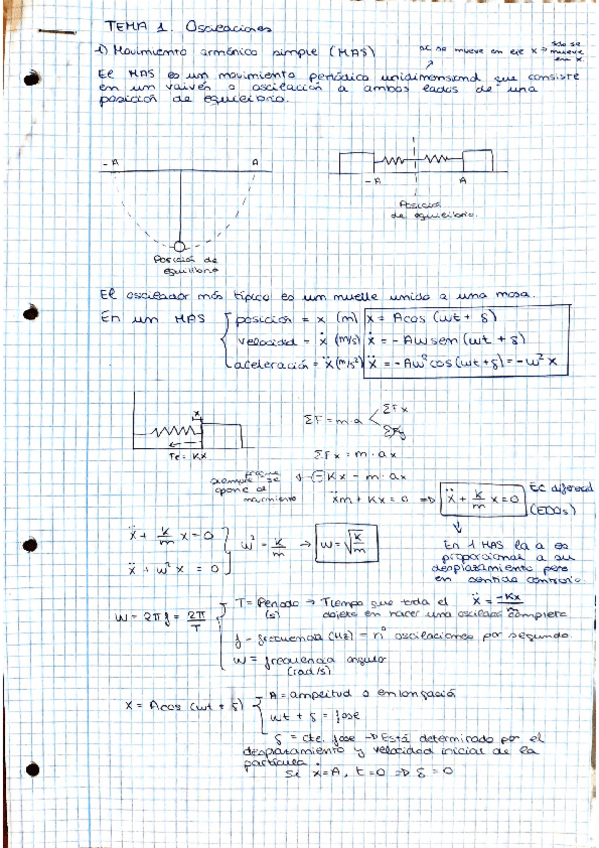 TEMA 1. Oscilaciones
1) Movimiento armónico simple (MAS)
se mueve en eje x → solo se mueve en x.
El MAS es un movimiento periódico unidimensional que consiste
en un vaivén o oscilación a ambos lados de una
posición de equilibrio.
-A A
-A A
Posición de equilibrio.
Posición de
equilibrio
El oscilador más típico es un muelle unido a una masa.
En un MAS { posición = x (m) x = Acos (wt + δ)
velocidad = ẋ (m/s) ẋ = -Aw sen (wt + δ)
aceleración = ẍ (m/s²) ẍ = -Aw² cos (wt + δ) = -w² x
x
Fe = Kx
ΣF = m·a < ΣFx
ΣFy
ΣFx = m·ax
siempre se
opone al
movimiento
-Kx = m·ax
ẍm + Kx = 0 => ẍ + K/m x = 0 EC diferencial
(EDOs)
ẍ + K/m x = 0
ẍ + w² x = 0
w² = K/m → w = √K/m
En 1 MAS la a es
proporcional a su
desplazamiento pero
en sentido contrario.
ẍ = -Kx/m
w = 2πf = 2π/T { T = Periodo → Tiempo que tarda el
(s) objeto en hacer una oscilación completa
f = frecuencia (Hz) = nº oscilaciones por segundo.
w = frecuencia angular
(rad/s)
x = Acos (wt + δ) { A = amplitud o enlongación
wt + δ = fase
δ = cte. fase → Está determinado por el
desplazamiento y velocidad inicial de la
partícula.
Si x=A, t=0 => δ = 0